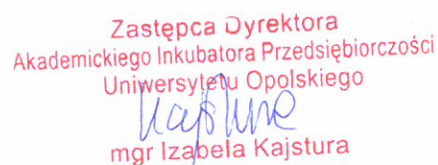 Zastępca Dyrektora
Akademickiego Inkubatora Przedsiębiorczości
Uniwersytetu Opolskiego
mgr Izabela Kajstura